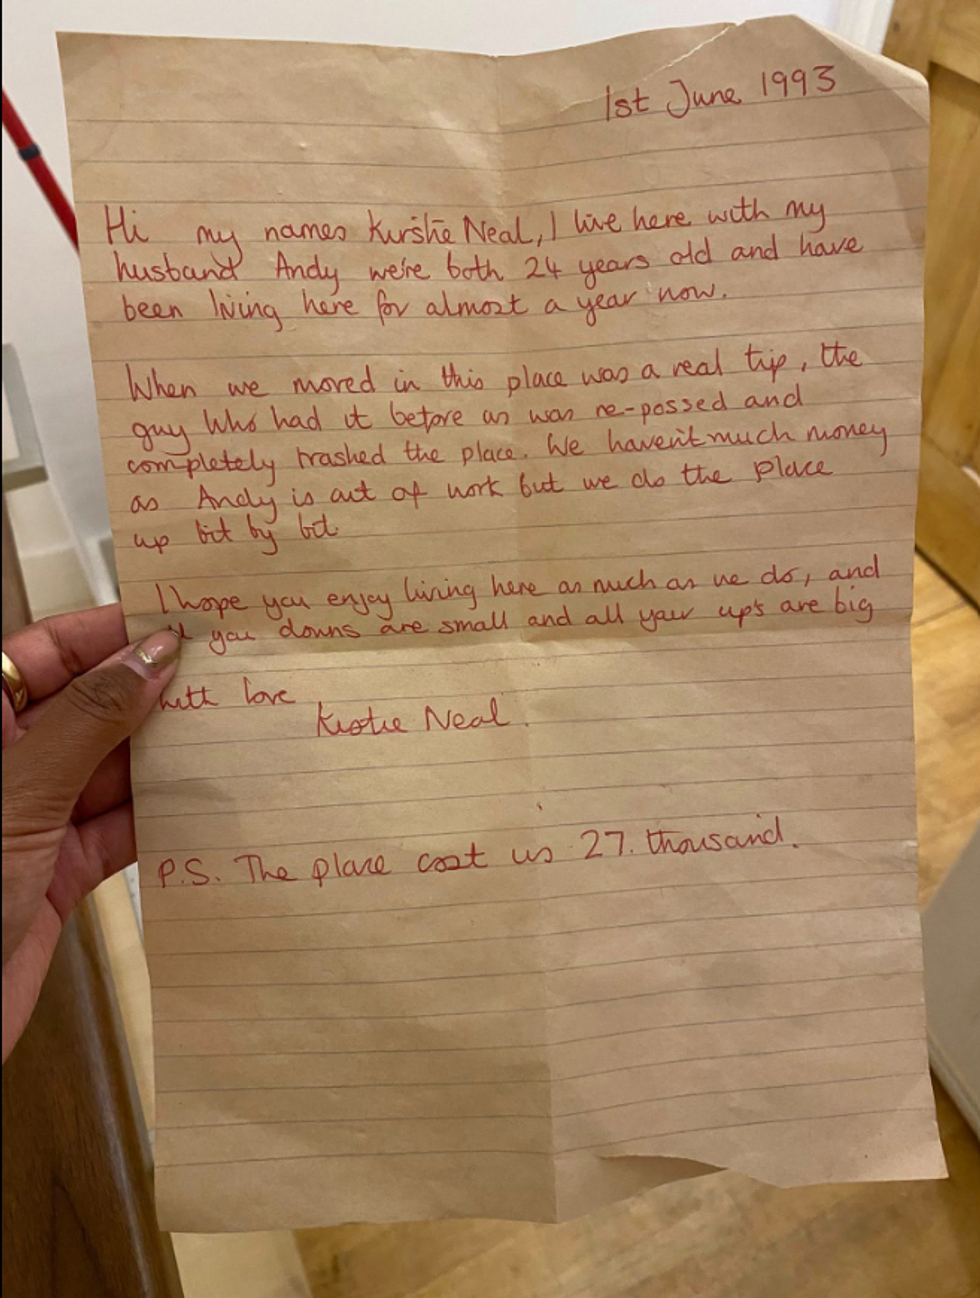 1st June 1993
Hi my names Kirstie Neal, I live here with my
husband Andy we're both 24 years old and have
been living here for almost a year now.
When we moved in this place was a real tip, the
guy who had it before us was re-possed and
completely trashed the place. We haven't much money
as Andy is out of work but we do the place
up bit by bit
I hope you enjoy living here as much as we do, and
you downs are small and all your up's are big
with love
Kirstie Neal.
P.S. The place cost us 27. thousand.